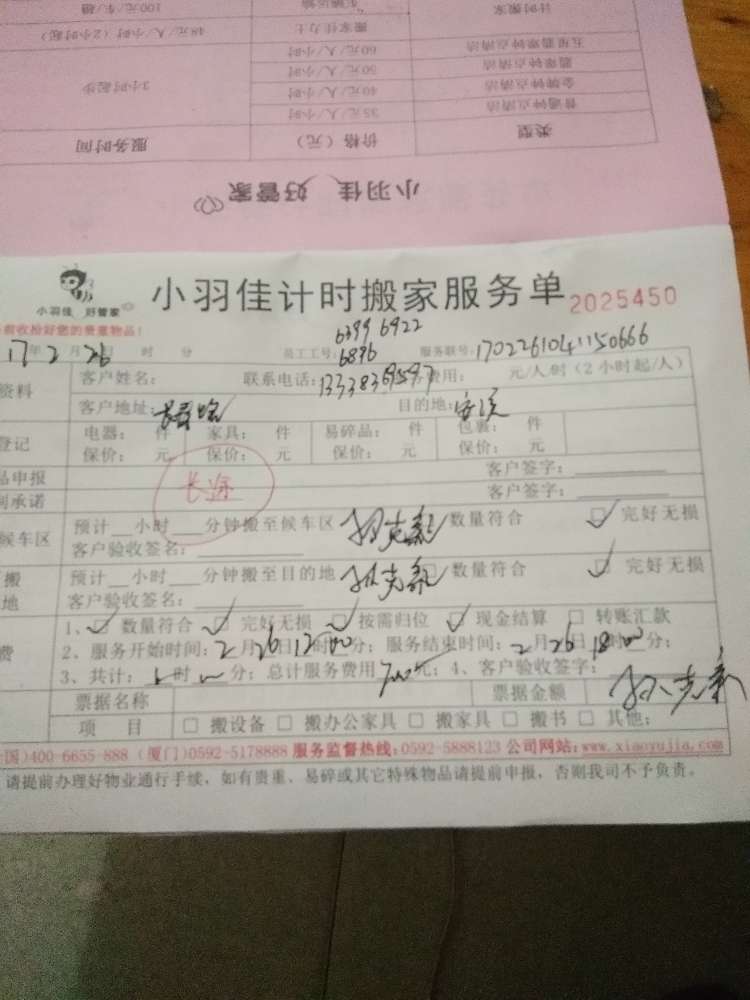 计时搬家 车辆运输 100元/车/趟
搬家佳力士 48元/人/小时 (2小时起)
五星翡翠钟点清洁 60元/人/小时
翡翠钟点清洁 50元/人/小时
金牌钟点清洁 40元/人/小时 3小时起步
普通钟点清洁 35元/人/小时
类型 价格(元) 服务时间
小羽佳 好管家
小羽佳 好管家
小羽佳计时搬家服务单 2025450
前收拾好您的贵重物品!
6399 6922
17年2月26日 时 分 员工工号: 6896 服务联号: 1702261041150666
资料 客户姓名: 联系电话: 费用: 元/人/时 (2小时起/人)
客户地址: 目的地: 安溪
登记 电器: 件 家具: 件 易碎品: 件 包裹: 件
保价: 元 保价: 元 保价: 元 保价: 元
长途
品申报 客户签字:
承诺 客户签字:
候车区 预计__小时__分钟搬至候车区 数量符合 完好无损
客户验收签名:
搬 预计__小时__分钟搬至目的地 数量符合 完好无损
地 客户验收签名:
1、 数量符合 完好无损 按需归位 现金结算 转账汇款
费 2、服务开始时间: 2月26日12时00分; 服务结束时间: 2月26日18时00分;
3、共计: 时 分; 总计服务费用 700元; 4、客户验收签字:
票据名称 票据金额
项 目 搬设备 搬办公家具 搬家具 搬书 其他:
国)400-6655-888 (厦门)0592-5178888 服务监督热线:0592-5888123 公司网站:www.xiaoyujia.com
请提前办理好物业通行手续,如有贵重、易碎或其它特殊物品请提前申报,否则我司不予负责。